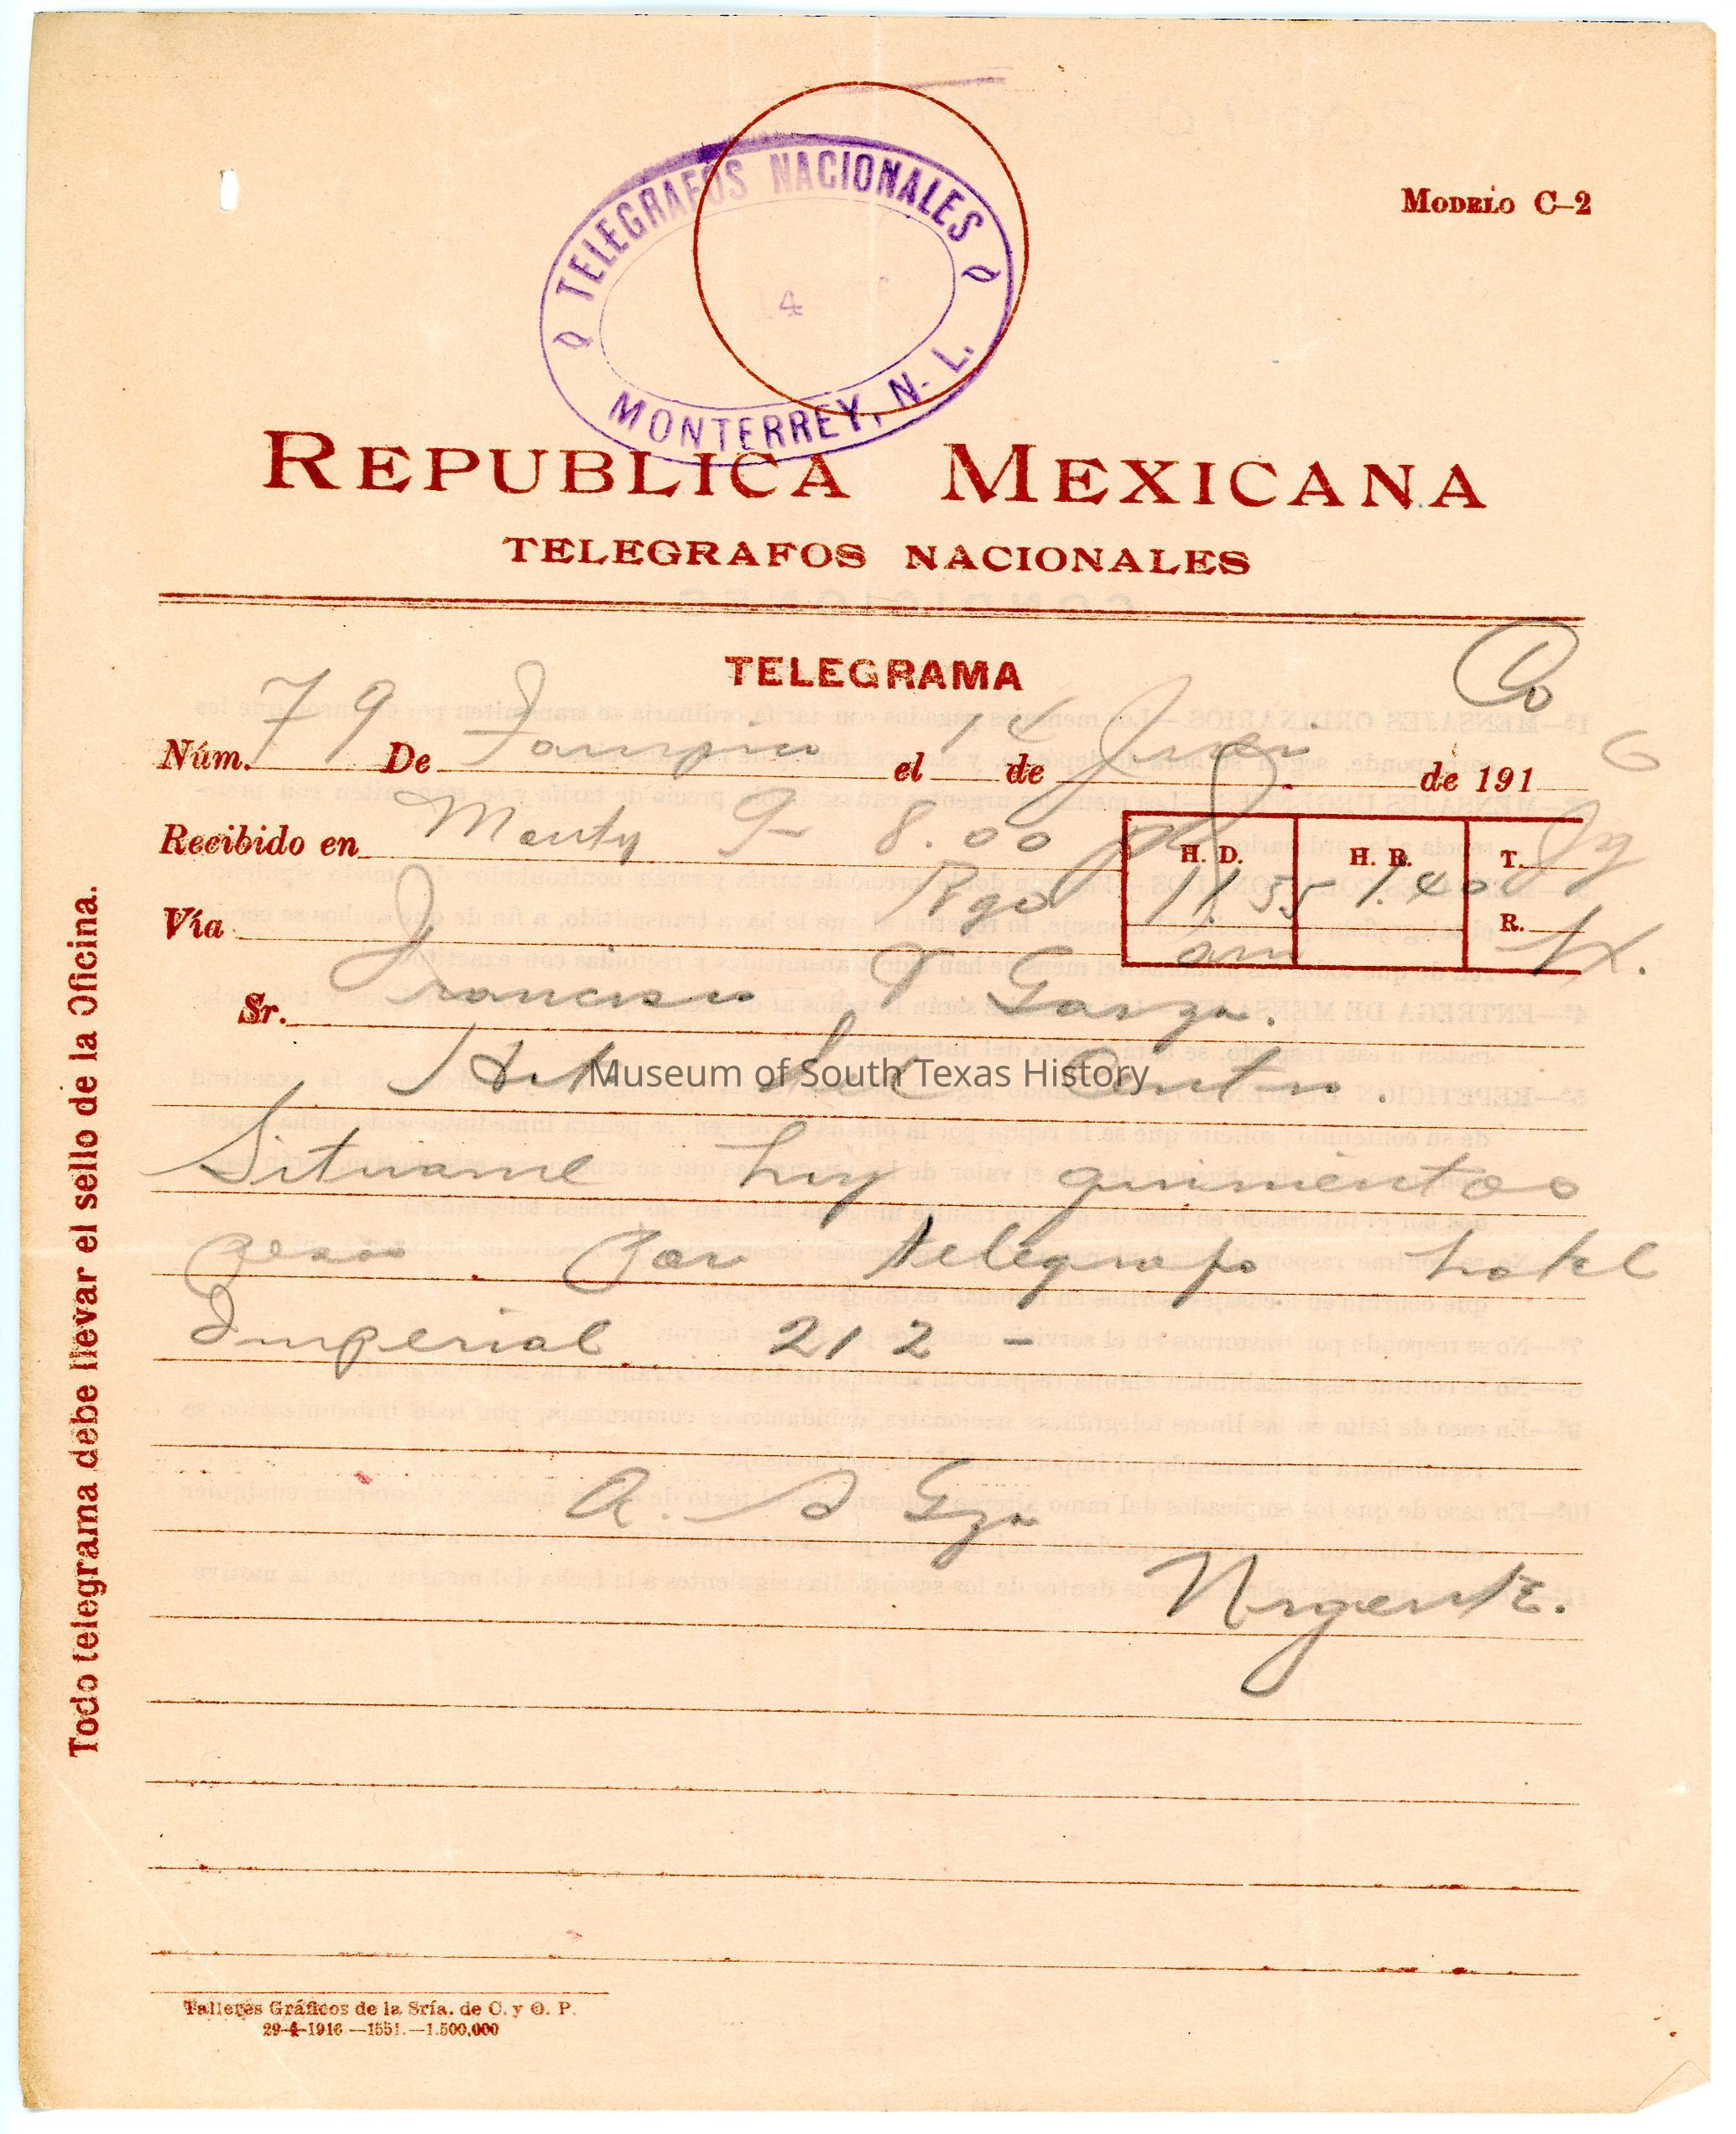 TELEGRAFOS NACIONALES
4
MONTERREY, N. L.
MODELO C-2
REPUBLICA MEXICANA
TELEGRAFOS NACIONALES
TELEGRAMA
Núm. 79 De Tampico el 14 de de 191 6
Recibido en Monty 9- 8.00
H. D. H. R. T. Jg
Pgo 11.55 1.40
Vía R.
am
Sr. Francisco T Garza.
Hotel del Centro.
Situame hoy quinientos
pesos por telegrafo hotel
Imperial 212 -
A. S Gza
Urgente.
Todo telegrama debe llevar el sello de la Oficina.
Museum of South Texas History
Talleres Gráficos de la Sría. de C. y O. P.
29-4-1916.—1551.—1.500,000